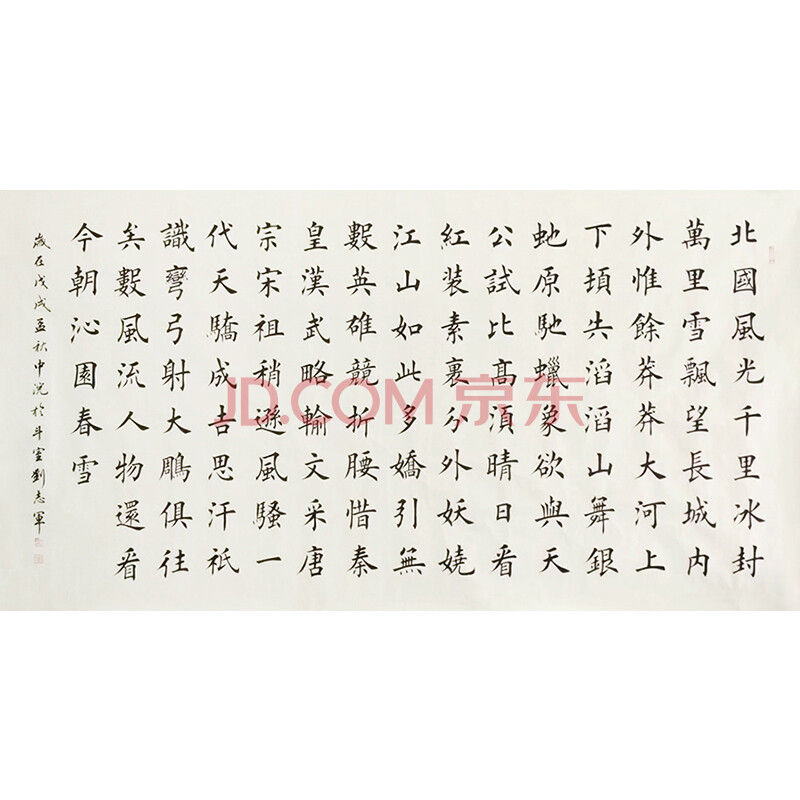 北國風光千里冰封
萬里雪飄望長城内
外惟餘莽莽大河上
下頓失滔滔山舞銀
虵原馳蠟象欲與天
公試比髙須晴日看
紅装素裹分外妖嬈
江山如此多嬌引無
數英雄競折腰惜秦
皇漢武略輸文采唐
宗宋祖稍遜風騷一
代天驕成吉思汗祇
識彎弓射大鵰俱往
矣數風流人物還看
今朝沁園春雪
歲在戊戌孟秋中浣於斗室劉志軍
JD.COM 京东